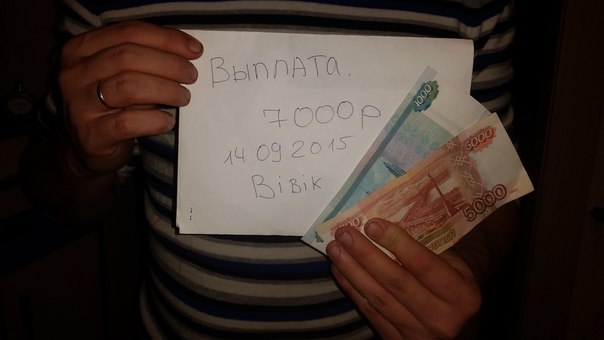 Выплата.
7000р
14 09 2015
Вівік
1000
5000
5000